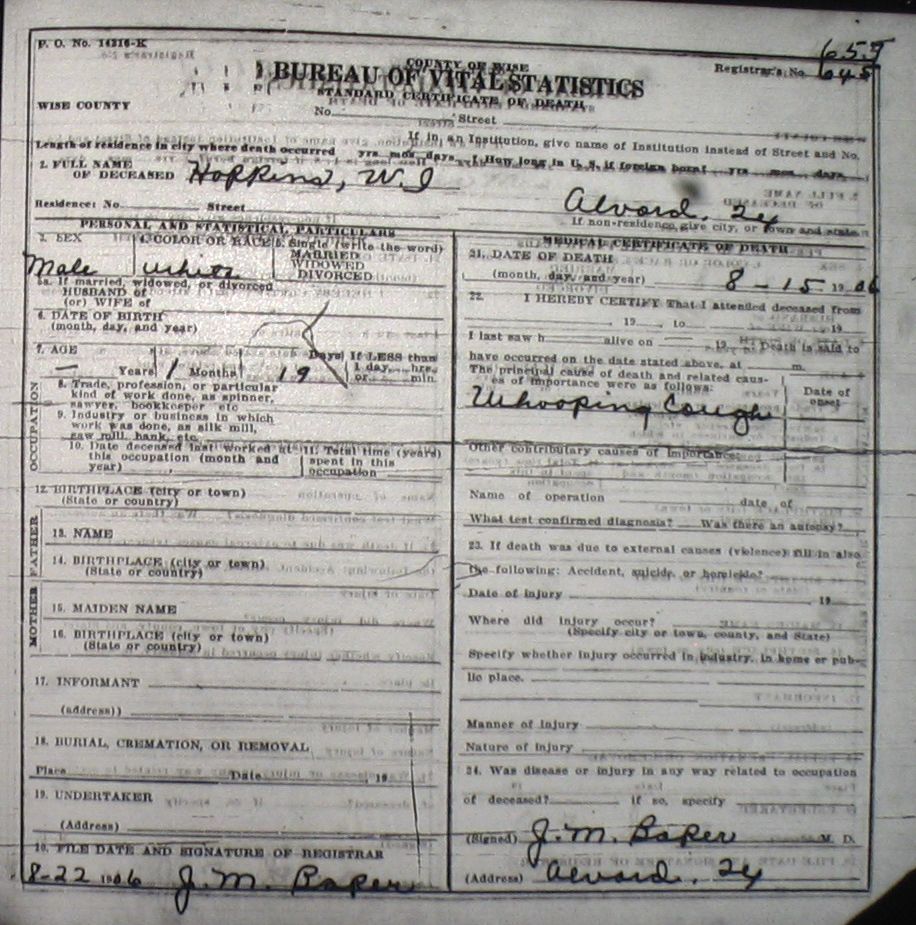 F. O. No. 14216-K
COUNTY OF WISE
Registrar's No. 655
645
BUREAU OF VITAL STATISTICS
WISE COUNTY
STANDARD CERTIFICATE OF DEATH
No. Street
If in an Institution, give name of Institution instead of Street and No.
Length of residence in city where death occurred yrs. mos. days. How long in U. S. if foreign born? yrs. mos. days.
1. FULL NAME OF DECEASED Hopkins, W. I
Residence: No. Street Alvord,
If non-residence give city, or town and state
PERSONAL AND STATISTICAL PARTICULARS
3. SEX Male
4. COLOR OR RACE White
5. Single (write the word)
MARRIED
WIDOWED
DIVORCED
5a. If married, widowed, or divorced
HUSBAND OF
(or) WIFE of
6. DATE OF BIRTH
(month, day, and year)
7. AGE — Years 1 Months 19 Days If LESS than
1 day, hrs.
or min.
OCCUPATION
8. Trade, profession, or particular
kind of work done, as spinner,
sawyer, bookkeeper etc
9. Industry or business in which
work was done, as silk mill,
saw mill, bank, etc
10. Date deceased last worked at
this occupation (month and
year)
11. Total time (years)
spent in this
occupation
12. BIRTHPLACE (city or town)
(State or country)
FATHER
13. NAME
14. BIRTHPLACE (city or town)
(State or country)
MOTHER
15. MAIDEN NAME
16. BIRTHPLACE (city or town)
(State or country)
17. INFORMANT
(address))
18. BURIAL, CREMATION, OR REMOVAL
Place Date , 19
19. UNDERTAKER
(Address)
10. FILE DATE AND SIGNATURE OF REGISTRAR
8-22 1906 J. M. Baker
MEDICAL CERTIFICATE OF DEATH
21. DATE OF DEATH
(month, day, and year) 8 - 15 1906
22. I HEREBY CERTIFY That I attended deceased from
, 19 , to , 19
I last saw h alive on 19 . Death is said to
have occurred on the date stated above, at m.
The principal cause of death and related causes
of importance were as follows:
Date of
onset
Whooping Cough
Other contributary causes of importance:
Name of operation date of
What test confirmed diagnosis? Was there an autopsy?
23. If death was due to external causes (violence) fill in also
the following: Accident, suicide, or homicide?
Date of injury 19
Where did injury occur?
(Specify city or town, county, and State)
Specify whether injury occurred in industry, in home or pub-
lic place.
Manner of injury
Nature of injury
24. Was disease or injury in any way related to occupation
of deceased? if so, specify
(Signed) J. M. Baker M. D.
(Address) Alvord,